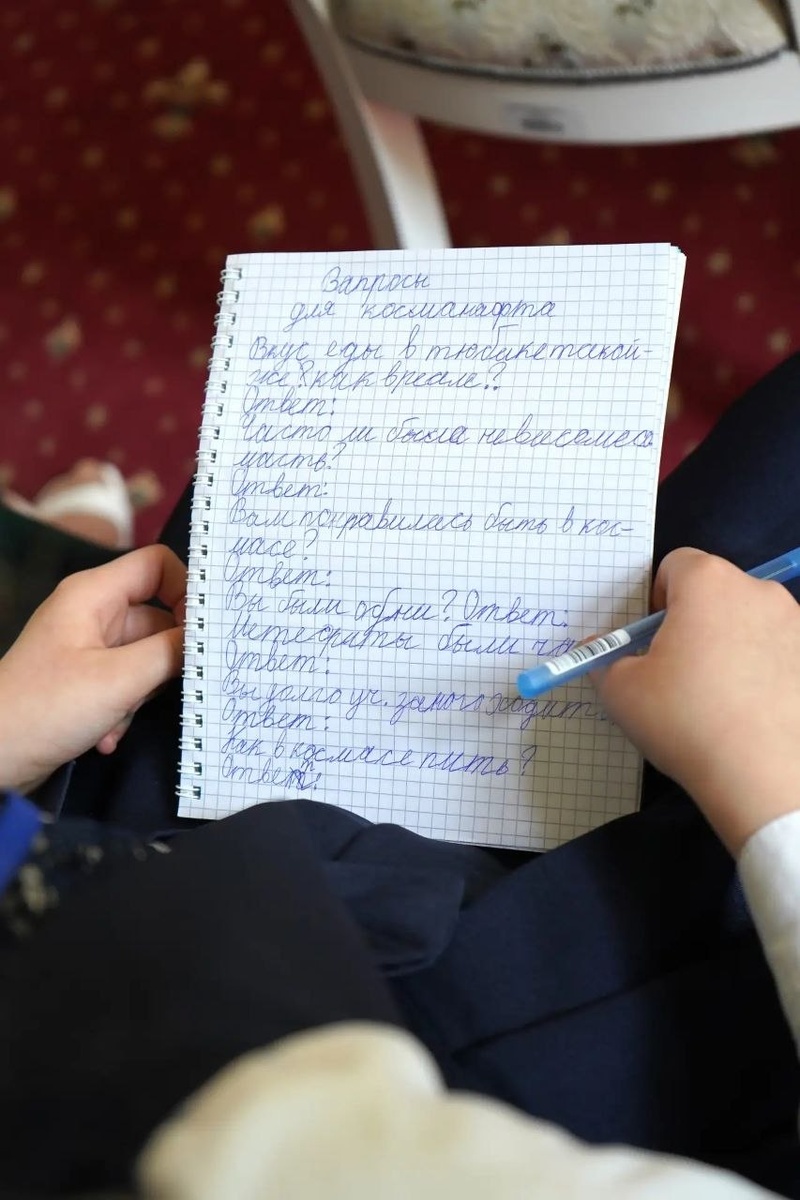 Вапросы
для косманафта
Вкус еды в тюбике такой-
же как в реале?
Ответ:
Часто ли была невесомесо
масть?
Ответ:
Вам понравилась быть в кос-
масе?
Ответ:
Вы были одни? Ответ:
Метеориты были
Ответ:
Вы долго уч.
Ответ:
Как в космасе пить?
Ответ: